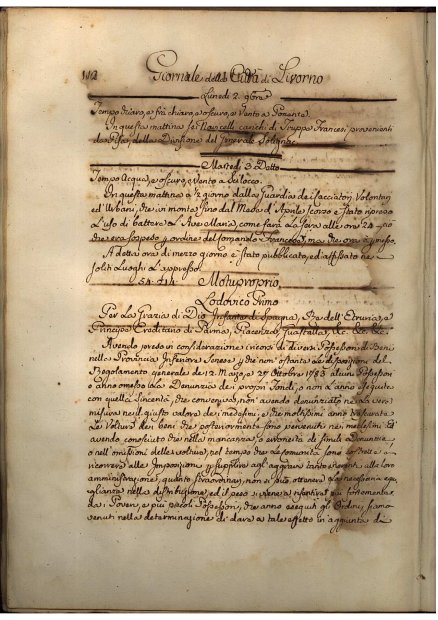 112 Giornale della Città di Livorno
Lunedì 2. 9bre
Tempo chiaro, e frà chiaro, e oscuro, e Vento a Ponente.
In questa mattina sei Navicelli carichi di Truppe Francesi provenienti
da Pisa, della Divisione del Generale
Martedì 3. Detto
Tempo Acqua, e oscuro, e Vento a Scilocco.
In questa mattina a 12 giorno dalla Guardia dei Cacciatori Volontari
ed Urbani, che in monta, fino dal Mese d'Aprile scorso è stato ripreso
l'uso di battere l'Ave Maria, come farà la sera alle ore 24,
che era sospeso d'ordine del Comando Francese, ma che ora è ripreso.
A detta ora di mezzo giorno è stato pubblicato, ed affissato ne
soliti Luoghi l'appresso.
54. 214. Motuproprio,
Lodovico Primo
Per la Grazia di Dio Infante di Spagna, Re dell'Etruria, e
Principe Ereditario di Parma, Piacenza, Guastalla, &c. &c. &c.
Avendo preso in considerazione i ricorsi di diversi Possessori di Beni
nella Provincia Inferiore Senese, che non ostante le disposizioni del
Regolamento generale de 12. Marzo, e 27. Ottobre 1783. alcuni Possessori
o anno omesso le Denunzie de propri Fondi, o non l'anno eseguite
con quella sincerità, che conveniva, non avendo denunziato nella vera
misura nell giusto valore dei medesimi, e che moltissimi anno trascurata
le Volture dei beni che posteriormente sono pervenuti nei medesimi, ed
avendo conosciuto che nella mancanza, o erroneità di simili Denunzie,
o nell'omissione delle volture, nel tempo che le Comunità sono costrette a
ricorrere alle Imposizioni, per supplire agl'aggravi tanto inerenti alla loro
amministrazione, quanto straordinari, non si può ottenere la necessaria egua-
glianza nella distribuzione, ed il peso viene a risentirsi più fortemente
da i Poveri, e più piccoli Possessori, che anno eseguiti gli Ordini, siamo
venuti nella determinazione di dare a tale effetto in aggiunta di